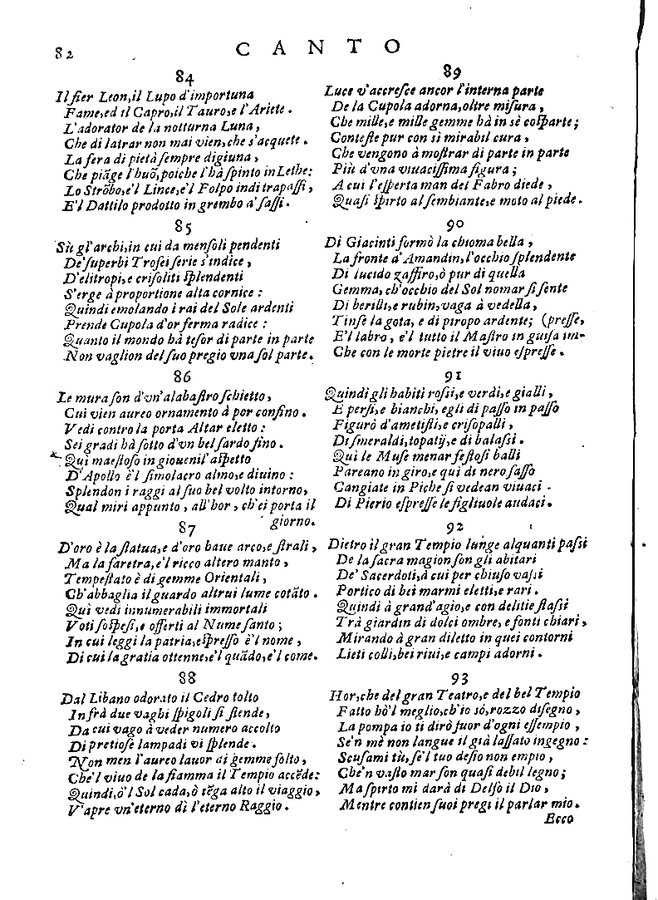 82
CANTO
84
Il fier Leon, il Lupo d'importuna
Fame, ed il Capro, il Tauro, e l'Ariete.
L'adorator de la notturna Luna,
Che di latrar non mai vien, che s'acquete.
La fera di pietà sempre digiuna,
Che piãge l'huõ, poiche l'hà spinto in Lethe:
Lo Strõbo, e'l Lince, e'l Folpo indi trapassi,
E'l Dattilo prodotto in grembo a'sassi.
85
Sù gl'archi, in cui da mensoli pendenti
De'superbi Trofei serie s'indice,
D'elitropi, e crisoliti splendenti
S'erge à proportione alta cornice:
Quindi emolando i rai del Sole ardenti
Prende Cupola d'or ferma radice:
Quanto il mondo hà tesor di parte in parte
Non vaglion del suo pregio vna sol parte.
86
Le mura son d'vn'alabastro schietto,
Cui vien aureo ornamento à por confino.
Vedi contro la porta Altar eletto:
Sei gradi hà sotto d'vn bel sardo fino.
Quì maestoso in giouenil'aspetto
D'Apollo è'l simolacro almo, e diuino:
Splendon i raggi al suo bel volto intorno,
Qual miri appunto, all'hor, ch'ei porta il
giorno.
87
D'oro è la statua, e d'oro haue arco, e strali,
Ma la faretra, e'l ricco altero manto,
Tempestato è di gemme Orientali,
Ch'abbaglia il guardo altrui lume cotãto.
Quì vedi innumerabili immortali
Voti sospesi, e offerti al Nume santo;
In cui leggi la patria, espresso è'l nome,
Di cui la gratia ottenne, e'l quãdo, e'l come.
88
Dal Libano odorato il Cedro tolto
Infrà due vaghi spigoli si stende,
Da cui vago à veder numero accolto
Di pretiose lampadi vi splende.
Non men l'aureo lauor di gemme folto,
Che'l viuo de la fiamma il Tempio accẽde:
Quindi, ò'l Sol cada, ò tẽga alto il viaggio,
V'apre vn'eterno dì l'eterno Raggio.
89
Luce v'accresce ancor l'interna parte
De la Cupola adorna, oltre misura,
Che mille, e mille gemme hà in sè cosparte;
Conteste pur con sì mirabil cura,
Che vengono à mostrar di parte in parte
Più d'vna viuacissima figura;
A cui l'esperta man del Fabro diede,
Quasi spirto al sembiante, e moto al piede.
90
Di Giacinti formò la chioma bella,
La fronte d'Amandin, l'occhio splendente
Di lucido zaffiro, ò pur di quella
Gemma, ch'occhio del Sol nomar si sente
Di berilli, e rubin, vaga à vedella,
Tinse la gota, e di piropo ardente; (presse,
E'l labro, e'l tutto il Mastro in guisa im-
Che con le morte pietre il viuo espresse.
91
Quindi gli habiti rossi, e verdi, e gialli,
E persi, e bianchi, egli di passo in passo
Figurò d'ametisti, e crisopalli,
Di smeraldi, topatij, e di balassi.
Quì le Muse menar festosi balli
Pareano in giro, e quì di nero sasso
Cangiate in Piche si vedean viuaci
Di Pierio espresse le figliuole audaci.
92
Dietro il gran Tempio lunge alquanti passi
De la sacra magion son gli abitari
De' Sacerdoti, à cui per chiuso vassi
Portico di bei marmi eletti, e rari.
Quindi à grand'agio, e con delitie stassi
Trà giardin di dolci ombre, e fonti chiari,
Mirando à gran diletto in quei contorni
Lieti colli, bei riui, e campi adorni.
93
Hor, che del gran Teatro, e del bel Tempio
Fatto hò'l meglio, ch'io sò, rozzo disegno,
La pompa io ti dirò fuor d'ogni essempio,
Se'n mè non langue il già lassato ingegno:
Scusami tù, se'l tuo desìo non empio,
Che'n vasto mar son quasi debil legno;
Ma spirto mi darà di Delfo il Dio,
Mentre contien suoi pregi il parlar mio.
Ecco